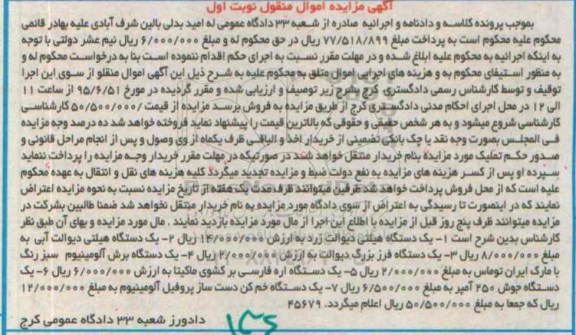 آگهی مزایده اموال منقول نوبت اول
بموجب پرونده کلاسه و دادنامه و اجرائیه صادره از شعبه ۳۳ دادگاه عمومی له امید بدلی بالین شرف آبادی علیه بهادر قائمی
محکوم علیه محکوم است به پرداخت مبلغ ۷۷/۵۱۸/۸۹۹ ریال در حق محکوم له و مبلغ ۶/۰۰۰/۰۰۰ ریال نیم عشر دولتی با توجه
به اینکه اجرائیه به محکوم علیه ابلاغ شده و در مهلت مقرر نسبت به اجرای حکم اقدام ننموده است بنا به درخواست محکوم له و
به منظور استیفای محکوم به و هزینه های اجرایی اموال متلق به محکوم علیه به شرح ذیل این آگهی اموال منقلو از سوی این اجرا
توقیف و توسط کارشناس رسمی دادگستری کرج بشرح زیر توصیف و ارزیابی شده و مقرر گردیده در مورخ ۹۵/۶/۵۱ از ساعت ۱۱
الی ۱۲ در محل اجرای احکام مدنی دادگستری کرج از طریق مزایده به فروش برسد مزایده از قیمت ۵۰/۵۰۰/۰۰۰/ کارشناسی
کارشناسی شروع میشود و به هر شخص حقیقی و حقوقی که بالاترین قیمت را پیشنهاد نماید فروخته خواهد شد ده درصد وجه مزایده
فی المجلس بصورت وجه نقد یا چک بانکی تضمینی از خریدار اخذ و الباقی ظرف یکماه از وی وصول و پس از انجام مراحل قانونی و
صدور حکم تملیک مورد مزایده بنام خریدار منتقل خواهد شد در صورتیکه در مهلت مقرر خریدار وجه مزایده را پرداخت ننماید
سپرده او پس از کسر هزینه های مزایده به نفع دولت ضبط و مزایده تجدید میگردد کلیه هزینه های نقل و انتقال به عهده محکوم
علیه است که از محل فروش پرداخت خواهد شد طرفین میتوانند ظرف مدت یک هفته از تاریخ مزایده نسبت به نحوه مزایده اعتراض
نمایند که در اینصورت تا رسیدگی به اعتراض از سوی دادگاه مورد مزایده به نام خریدار منتقل نخواهد شد ضمنا طالبین بشرکت در
مزایده میتوانند ظرف پنج روز قبل از مزایده با اطلاع این اجرا از مال مورد مزایده بازدید نمایند . مال مورد مزایده و بهای آن طبق نظر
کارشناس بدین شرح است ۱- یک دستگاه هیلتی دیوالت زرد به ارزش ۱۴/۰۰۰/۰۰۰ ریال ۲- یک دستگاه هیلتی دیوالت آبی به
مبلغ ۸/۰۰۰/۰۰۰ ریال ۳- یک دستگاه فرز بزرگ دیوالت به ارزش ۲/۰۰۰/۰۰۰ ریال ۴- یک دستگاه برش آلومینیوم سبز رنگ
با مارک ایران توماس به مبلغ ۲/۰۰۰/۰۰۰ ریال ۵- یک دستگاه اره فارسی بر کشوی ماکیتا به ارزش ۶/۰۰۰/۰۰۰ ریال ۶- یک
دستگاه جوش ۲۵۰ آمپر به مبلغ ۶/۵۰۰/۰۰۰ ریال ۷- یک دستگاه خم کن دست ساز پروفیل آلومینیوم به مبلغ ۱۲/۰۰۰/۰۰۰
ریال که جمعا به مبلغ ۵۰/۵۰۰/۰۰۰ ریال اعلام میگردد. ۴۵۶۷۹
دادورز شعبه ۳۳ دادگاه عمومی کرج